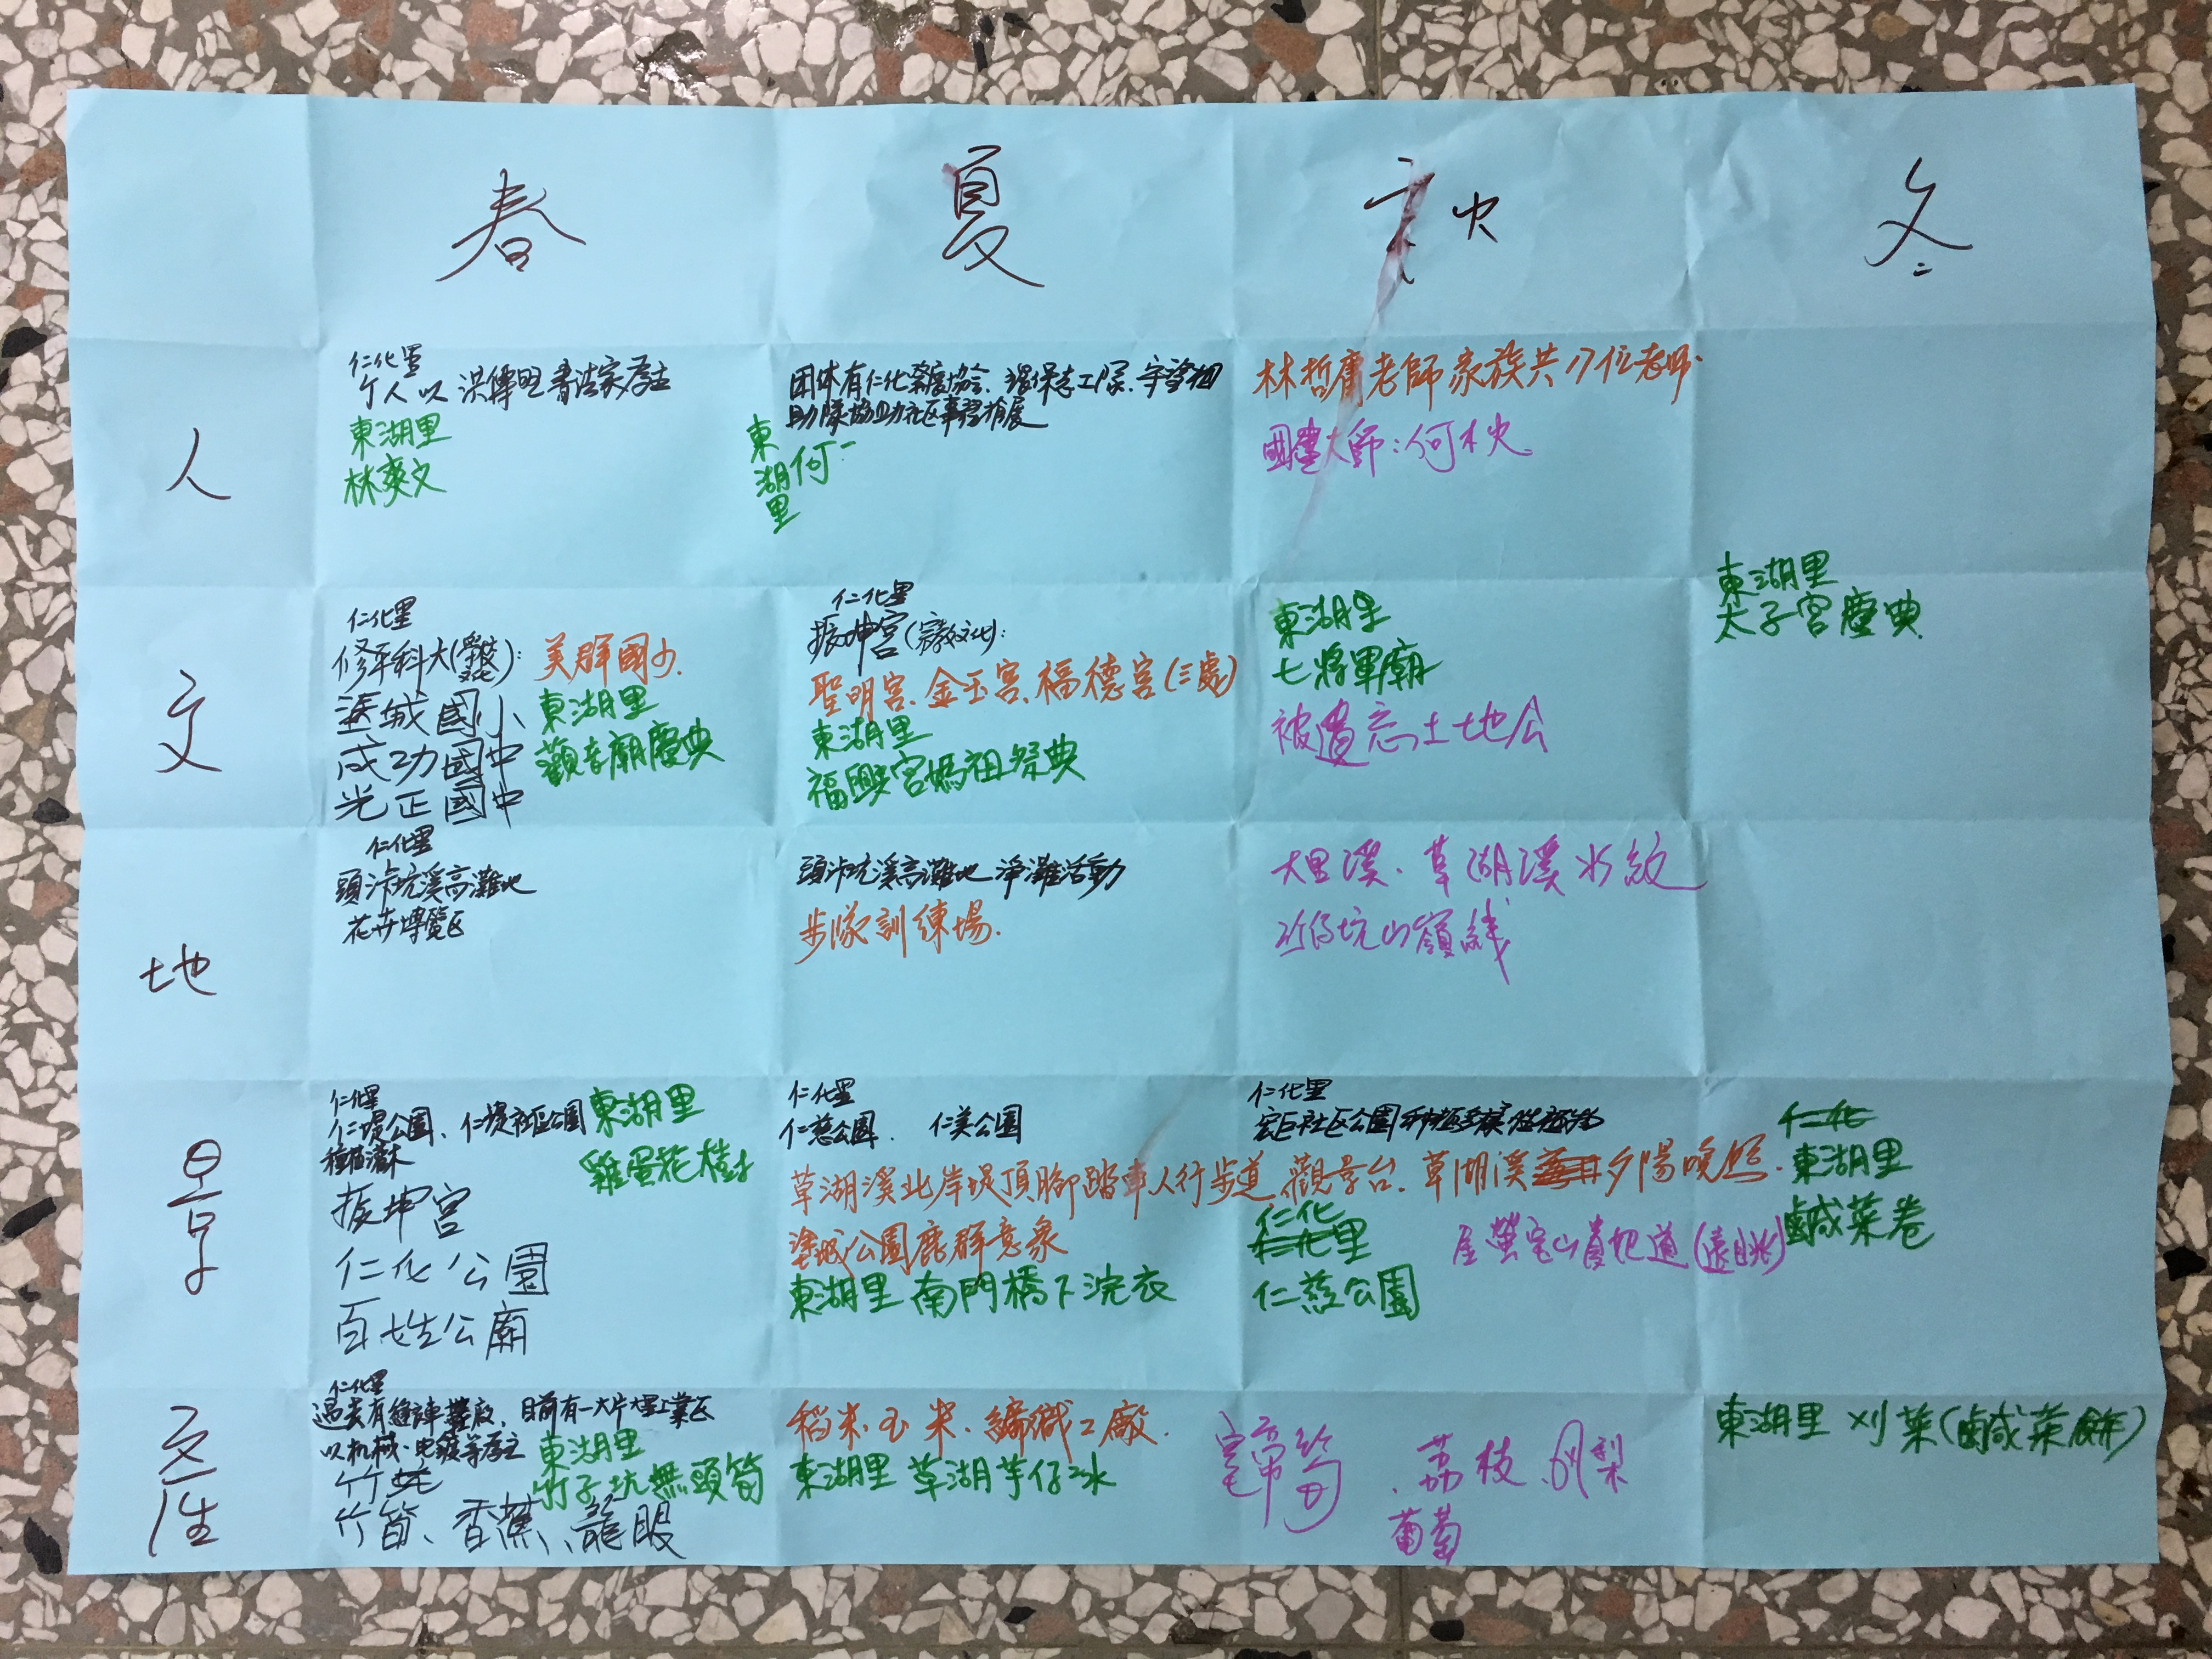 春
夏
秋
冬
人
仁化里
个人以洪傳旺書法家為主
東湖里
林爽文
团体有仁化發展協会、環保志工隊、守望相
助隊協助社区事務推展
東湖里
何一
林哲庸老師家族共17位老師.
國畫大師:何木火
文
仁化里
修平科大(學校文化):
塗城國小
成功國中
光正國中
美群國小.
東湖里
觀音廟慶典
仁化里
振坤宮(宗教文化):
聖明宮.金玉宮.福德宮(三處)
東湖里
福興宮媽祖祭典
東湖里
七將軍廟
被遺忘土地公
東湖里
太子宮慶典
地
仁化里
頭汴坑溪高灘地
花卉博覽区
頭汴坑溪高灘地淨灘活動
步隊訓練場.
大里溪.草湖溪水紋
竹仔坑山嶺線
景
仁化里
仁堤公園、仁堤社區公園
種植灌木
振坤宮
仁化公園
百姓公廟
東湖里
雞蛋花樹
仁化里
仁慈公園、仁美公園
草湖溪北岸堤頂腳踏車人行步道.觀景台.草湖溪夕陽晚照.
塗城公園鹿群意象
東湖里 南門橋下浣衣
仁化里
宏巨社区公園
仁化里
仁慈公園
東湖里
鹹菜卷
產
仁化里
過去有鐘錶廠,目前有一大片大里工業区
以机械.电鍍等為主
竹筍、香蕉、龍眼
東湖里
竹子坑無頭筍
稻米.玉米.編織工廠.
東湖里 草湖芋仔冰
.荔枝.鳳梨
葡萄
東湖里 刈菜(鹹菜餅)